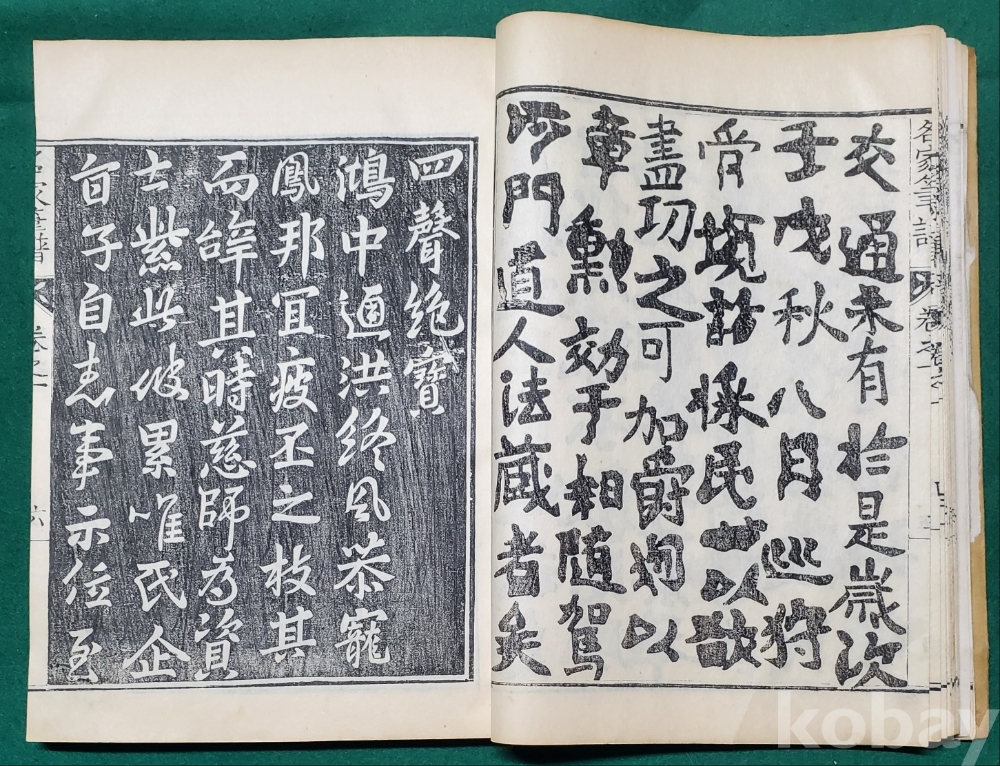 名家筆譜 卷之一
交通未有於是歲次
壬戌秋八月巡狩
管境訪採民心以欲
盡功之可加爵物以
章勳効于相随駕
沙門道人法藏者矣
四聲絶寶
鴻中通洪終風恭寵
鳳邦冝疲丕之枝其
而其時慈師為資
士紫此彼累唯民企
旨子自志事示位至
名家筆譜 卷之一
kobay